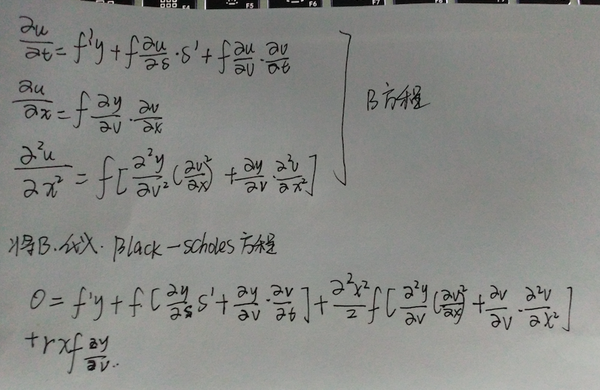 ∂u/∂t = f'y + f ∂u/∂s · s' + f ∂u/∂v · ∂v/∂t
∂u/∂x = f ∂y/∂v · ∂v/∂x
B方程
∂²u/∂x² = f[∂²y/∂v² (∂v²/∂x) + ∂y/∂v · ∂²v/∂x²]
将B.代入.Black-scholes方程
0 = f'y + f[∂y/∂s s' + ∂y/∂v · ∂v/∂t] + ∂²x²/2 f[∂²y/∂v (∂v²/∂x) + ∂v/∂v · ∂²v/∂x²]
+rxf ∂y/∂v..